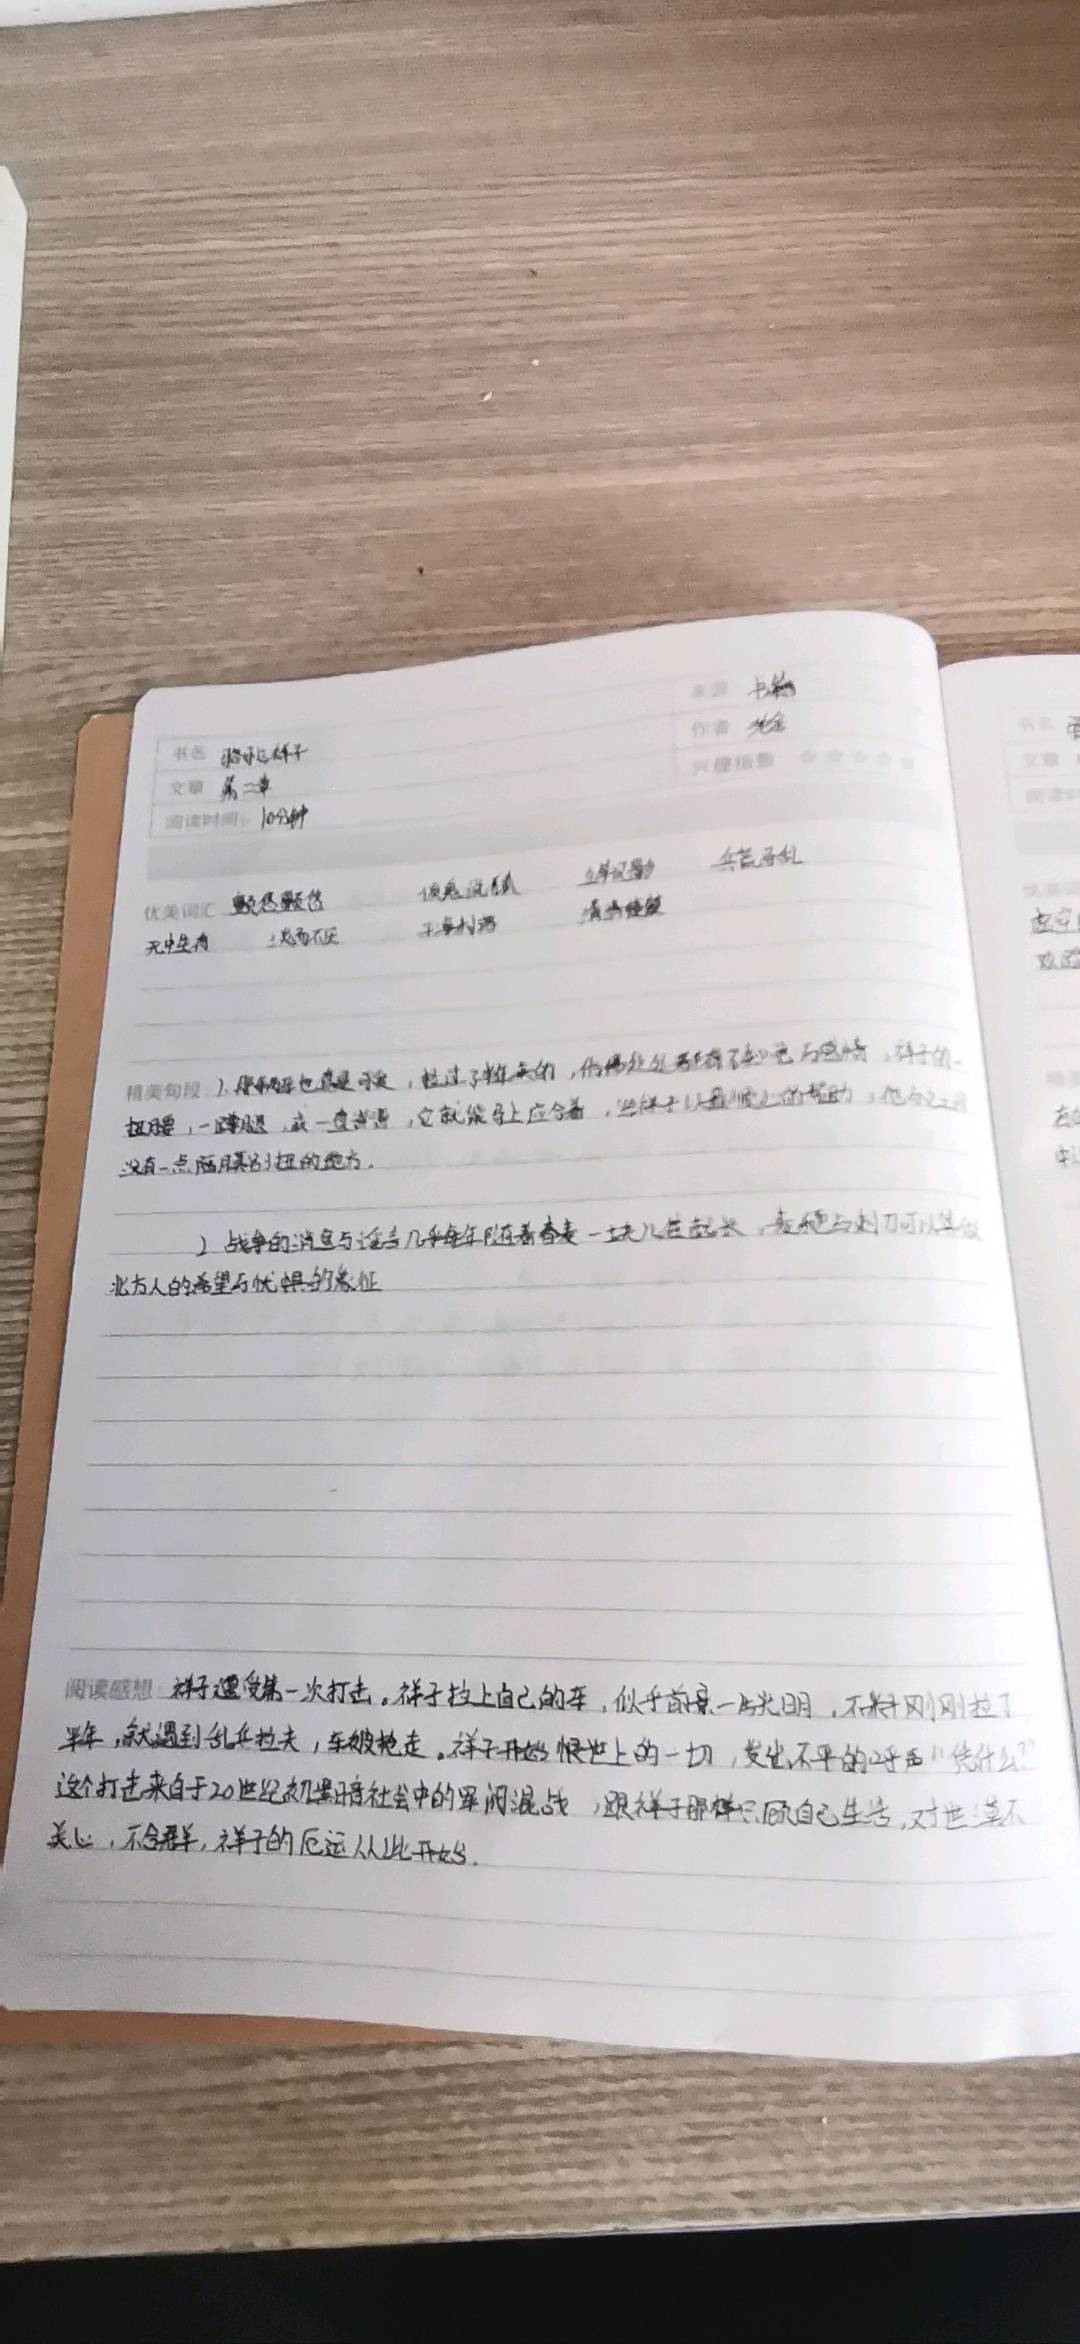 来源 书籍
书名 骆驼祥子 作者 老舍
文章 第二章 兴趣指数
阅读时间: 10分钟
优美词汇
无中生有 干净利落 清清楚楚
精美句段 1. 那辆车也真是可爱,拉过了半年来的,仿佛处处都有了知觉与感情,祥子的一
扭腰,一蹲腿,或一直脊背,它就能马上应合着,给祥子以最顺心的帮助,他与它之间
没有一点隔膜别扭的地方。
2 战争的消息与谣言几乎每年随着春麦一块儿往起长,麦穗与刺刀可以算做
北方人的希望与忧惧的象征
阅读感想 祥子遭受第一次打击。祥子拉上自己的车,似乎前景一片光明,不料刚刚拉了
半年,就遇到乱兵拉夫,车被抢走。祥子开始恨世上的一切,发出不平的呼声"凭什么?"
这个打击来自于20世纪初黑暗社会中的军阀混战,跟祥子那样只顾自己生活,对世漠不
关心,不合群,祥子的厄运从此开始.